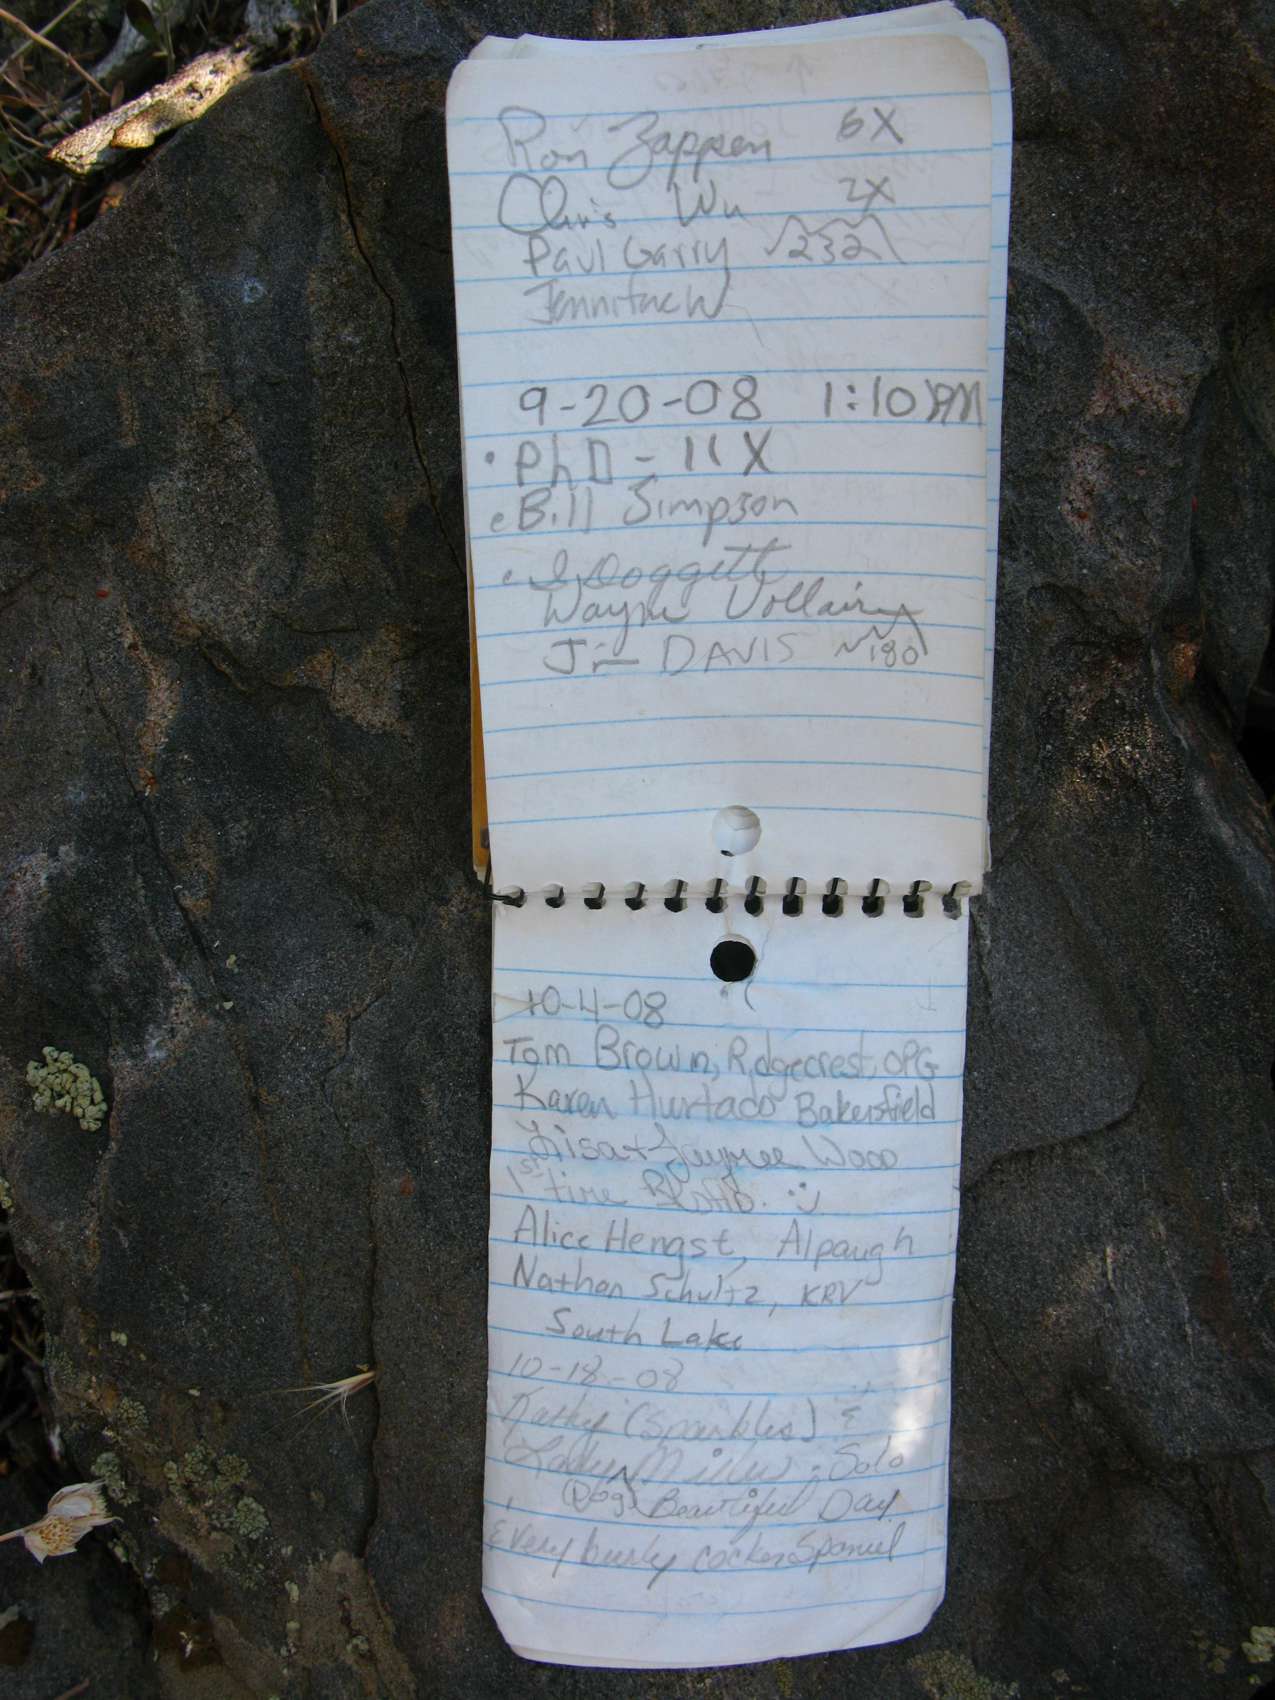 Ron Zappen 6X
Chris Wu 2X
Paul Garry 232
Jennifer W
9-20-08 1:10 PM
• PhD - 11X
• Bill Simpson
• Doggett
Wayne Vollaire
Jim DAVIS 180
10-4-08
Tom Brown, Ridgecrest, OPG
Karen Hurtado Bakersfield
Lisa + Wood
1st time :)
Alice Hengst, Alpaugh
Nathan Schultz, KRV
South Lake
10-18-08
Kathy (Sparkles) &
Solo
Dog Beautiful Day
& very burly cocker Spaniel